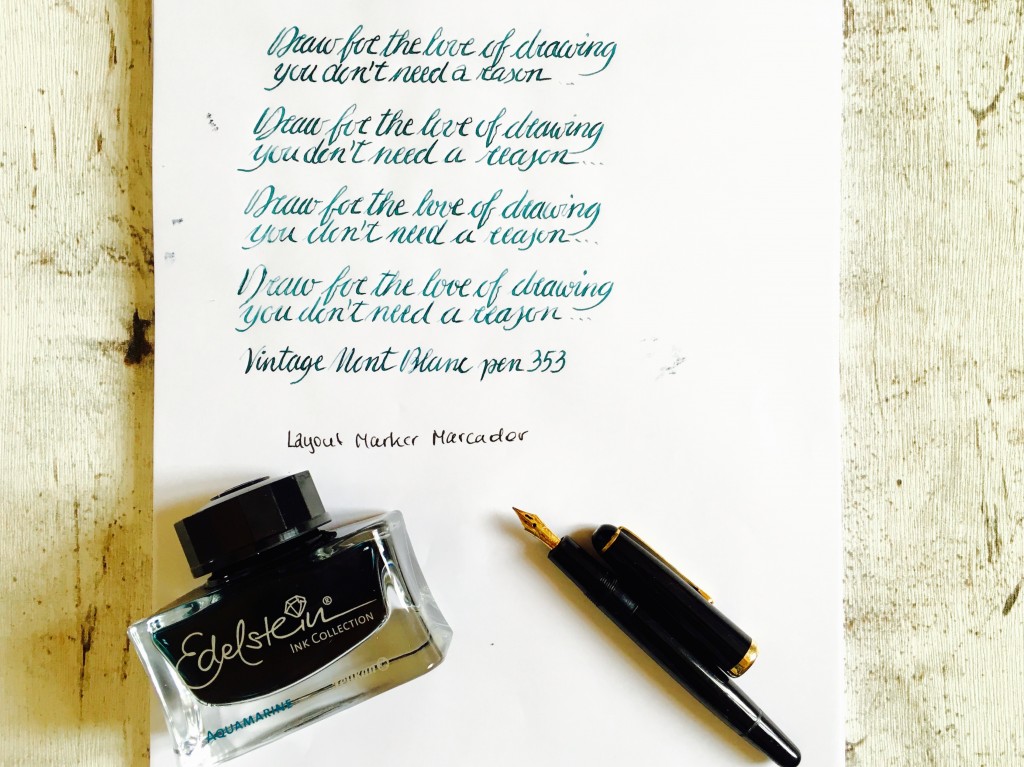 Draw for the love of drawing
you don't need a reason
Draw for the love of drawing
you don't need a reason...
Draw for the love of drawing
you don't need a reason...
Draw for the love of drawing
you don't need a reason...
Vintage Mont Blanc pen 353
Layout Marker Marcador
Edelstein®
INK COLLECTION
Pelikan
AQUAMARINE